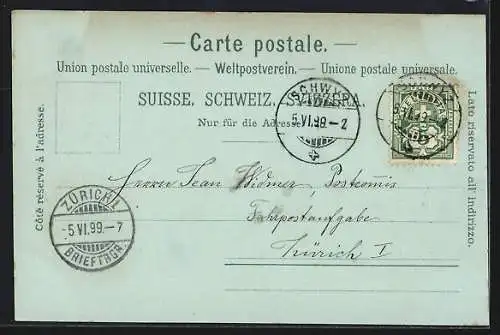 Carte postale.
Union postale universelle. — Weltpostverein. — Unione postale universale.
SUISSE. SCHWEIZ. SVIZZERA.
Nur für die Adresse
SCHWYZ
5.VI.99.-2
HELVETIA
Côté réservé à l'adresse.
Lato riservato all' indirizzo.
ZÜRICH 1
-5.VI.99.-7
BRIEFTRGR.
Herrn Jean Widmer, Postcomis
Fahrpostaufgabe
Zürich I